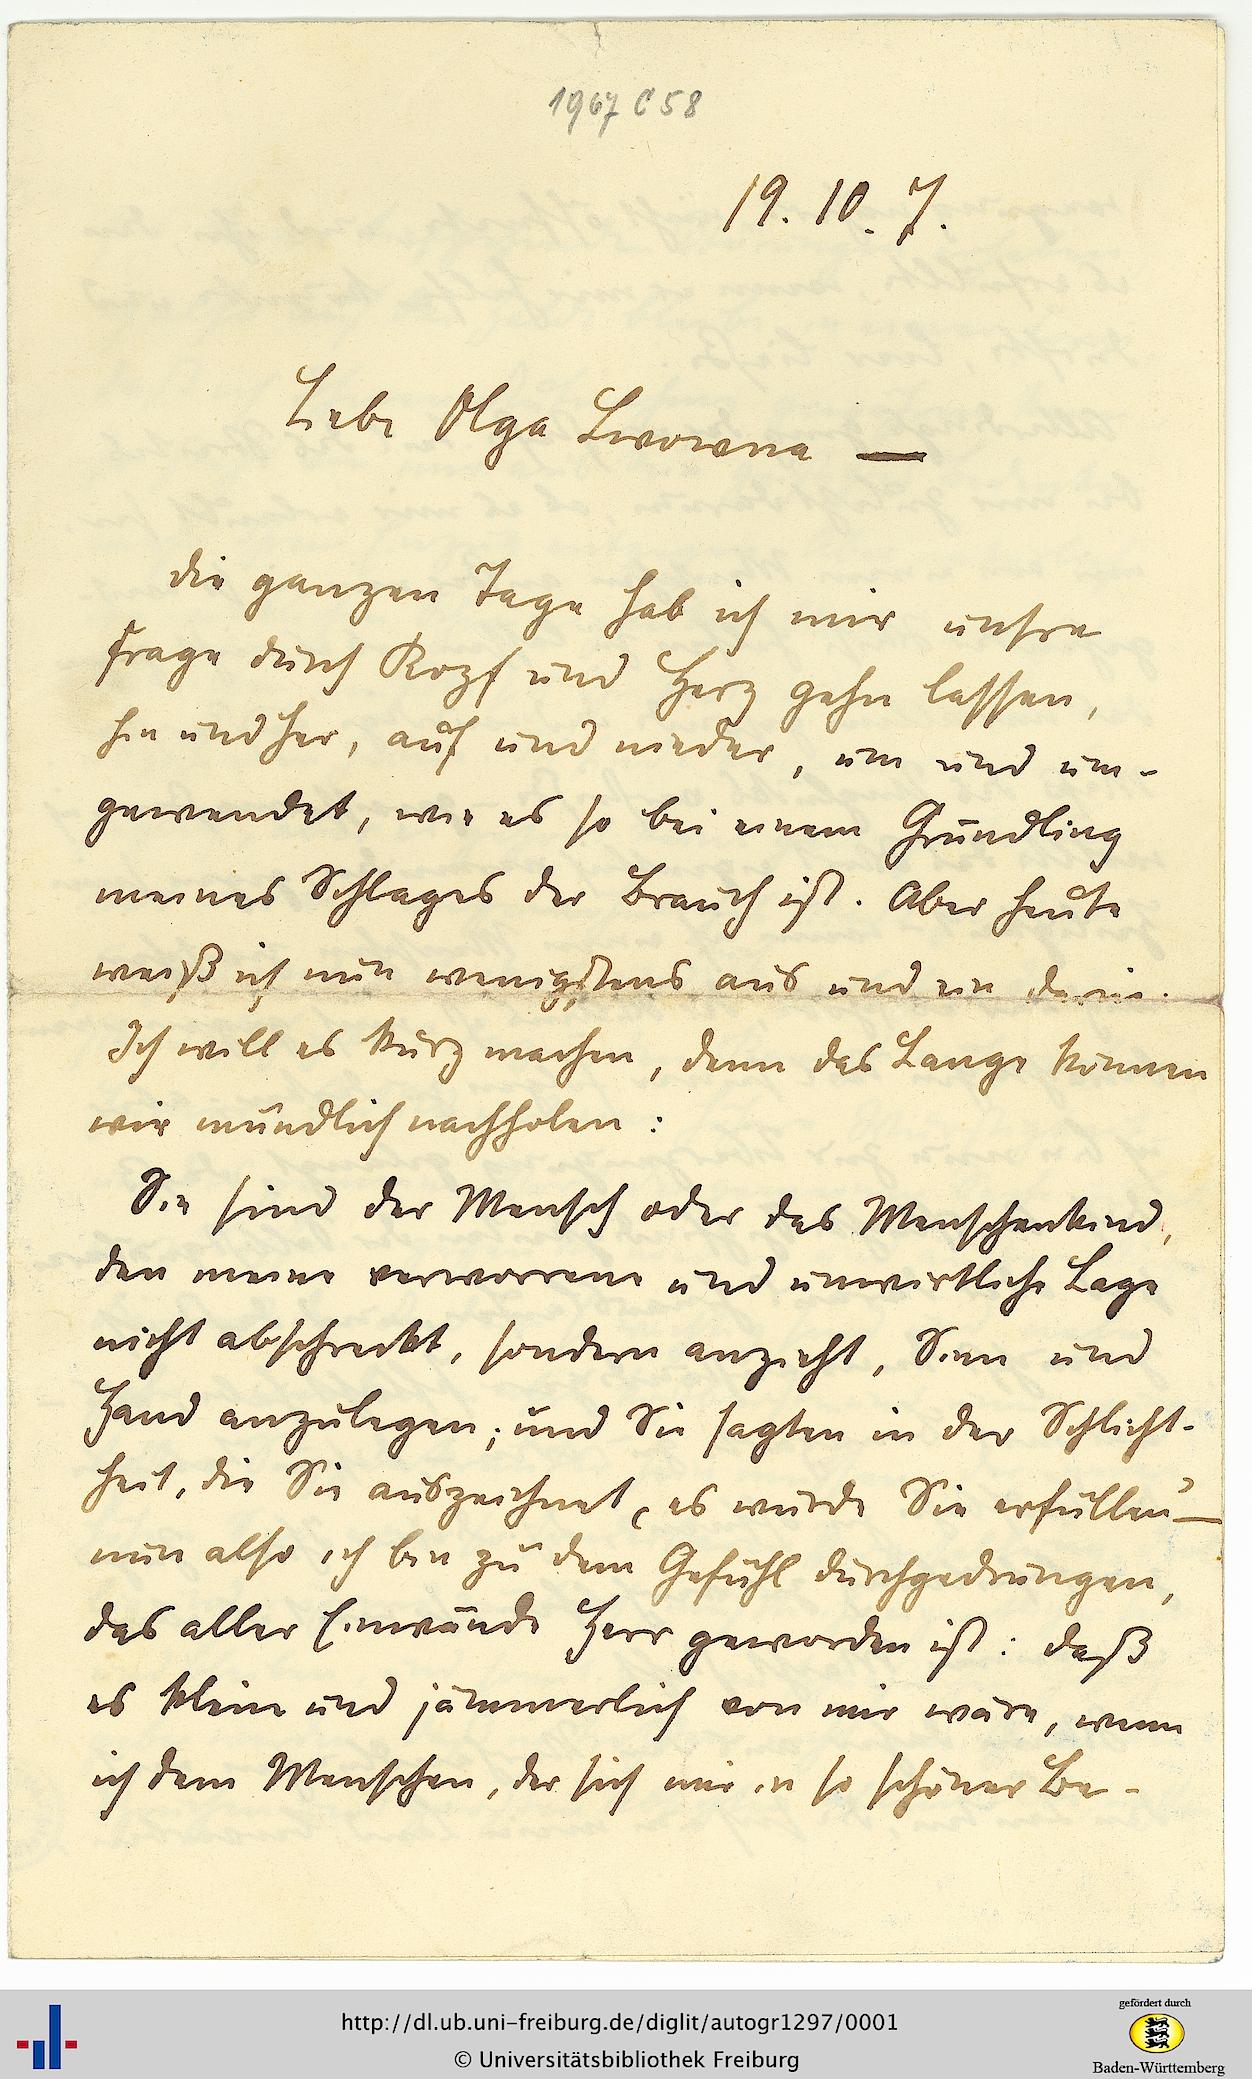 1967 C 58
19. 10. 7.
Liebe Olga Lwowna —
die ganzen Tage hab ich mir unsre
Frage durch Kopf und Herz gehn lassen,
hin und her, auf und nieder, um und um-
gewendet, wie es so bei einem Gründling
meines Schlages der Brauch ist. Aber heute
weiß ich nun wenigstens aus und ein darin.
Ich will es kurz machen, denn das Lange können
wir mündlich nachholen:
Sie sind der Mensch oder das Menschenkind,
den meine verworrene und unwirtliche Lage
nicht abschreckt, sondern anzieht, Sinn und
Hand anzulegen; und Sie sagten in der Schlicht-
heit, die Sie auszeichnet, es würde Sie erfüllen —
nun also ich bin zu dem Gefühl durchgedrungen,
das aller Einwände Herr geworden ist: daß
es klein und jämmerlich von mir wäre, wenn
ich dem Menschen, der sich mir in so schöner Be-
http://dl.ub.uni-freiburg.de/diglit/autogr1297/0001
© Universitätsbibliothek Freiburg
gefördert durch
Baden-Württemberg